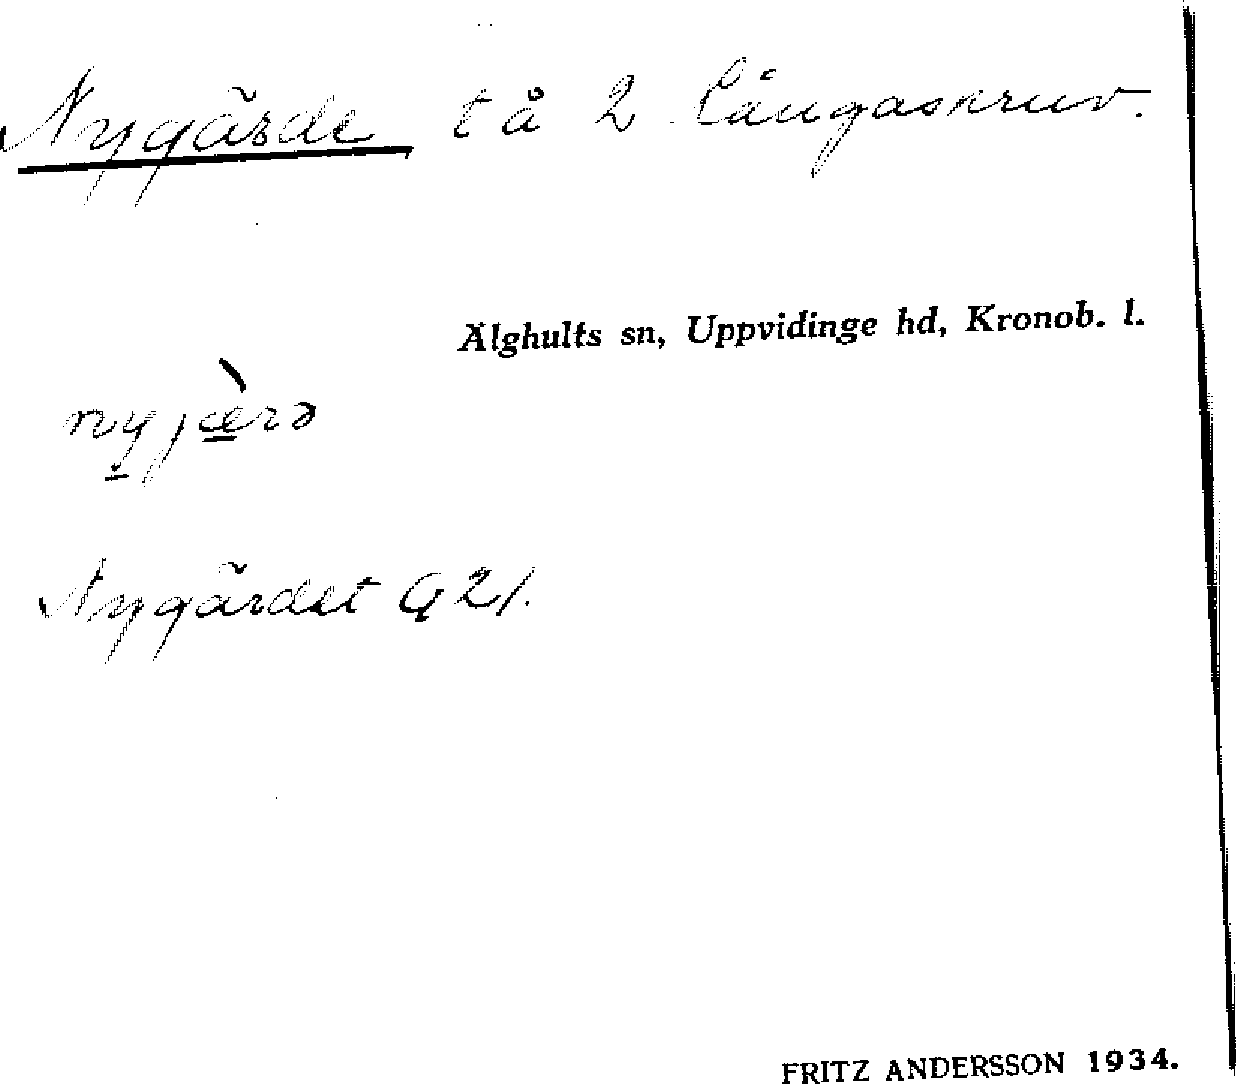 Nygärde t å 2 Långaskruv.
Älghults sn, Uppvidinge hd, Kronob. l.
nyjæ̀rə
Nygärdet G 21.
FRITZ ANDERSSON 1934.